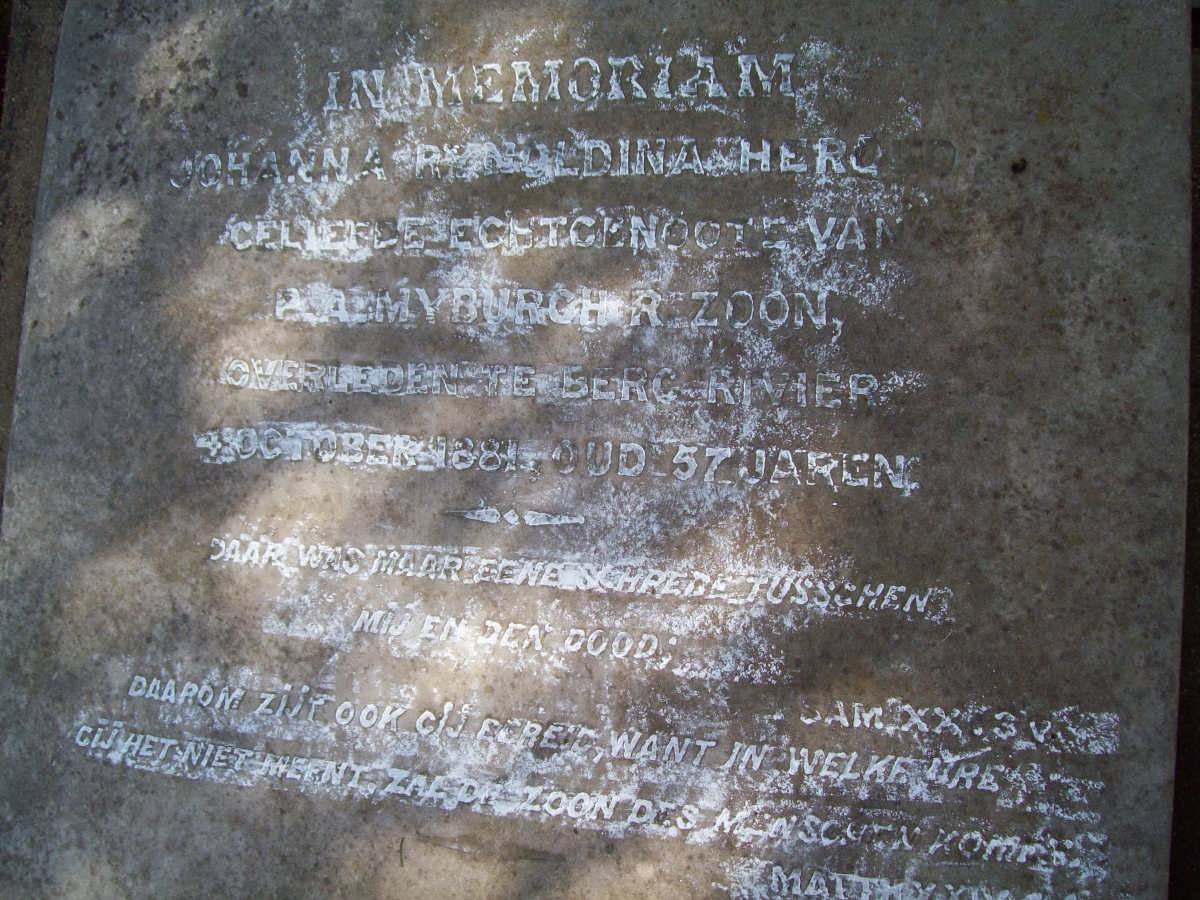 IN MEMORIAM
JOHANNA REYNOLDINA HEROLD
GELIEFDE ECHTGENOOTE VAN
P. A. MYBURGH R. ZOON,
OVERLEDEN TE BERG RIVIER
4 OCTOBER 1881, OUD 57 JAREN.
DAAR WAS MAAR EENE SCHREDE TUSSCHEN
MIJ EN DEN DOOD;
SAM. XX: 3 V.
DAAROM ZIJT OOK GIJ BEREID, WANT IN WELKE URE
GIJ HET NIET MEENT, ZAL DE ZOON DES MENSCHEN KOMEN.
MATTH.